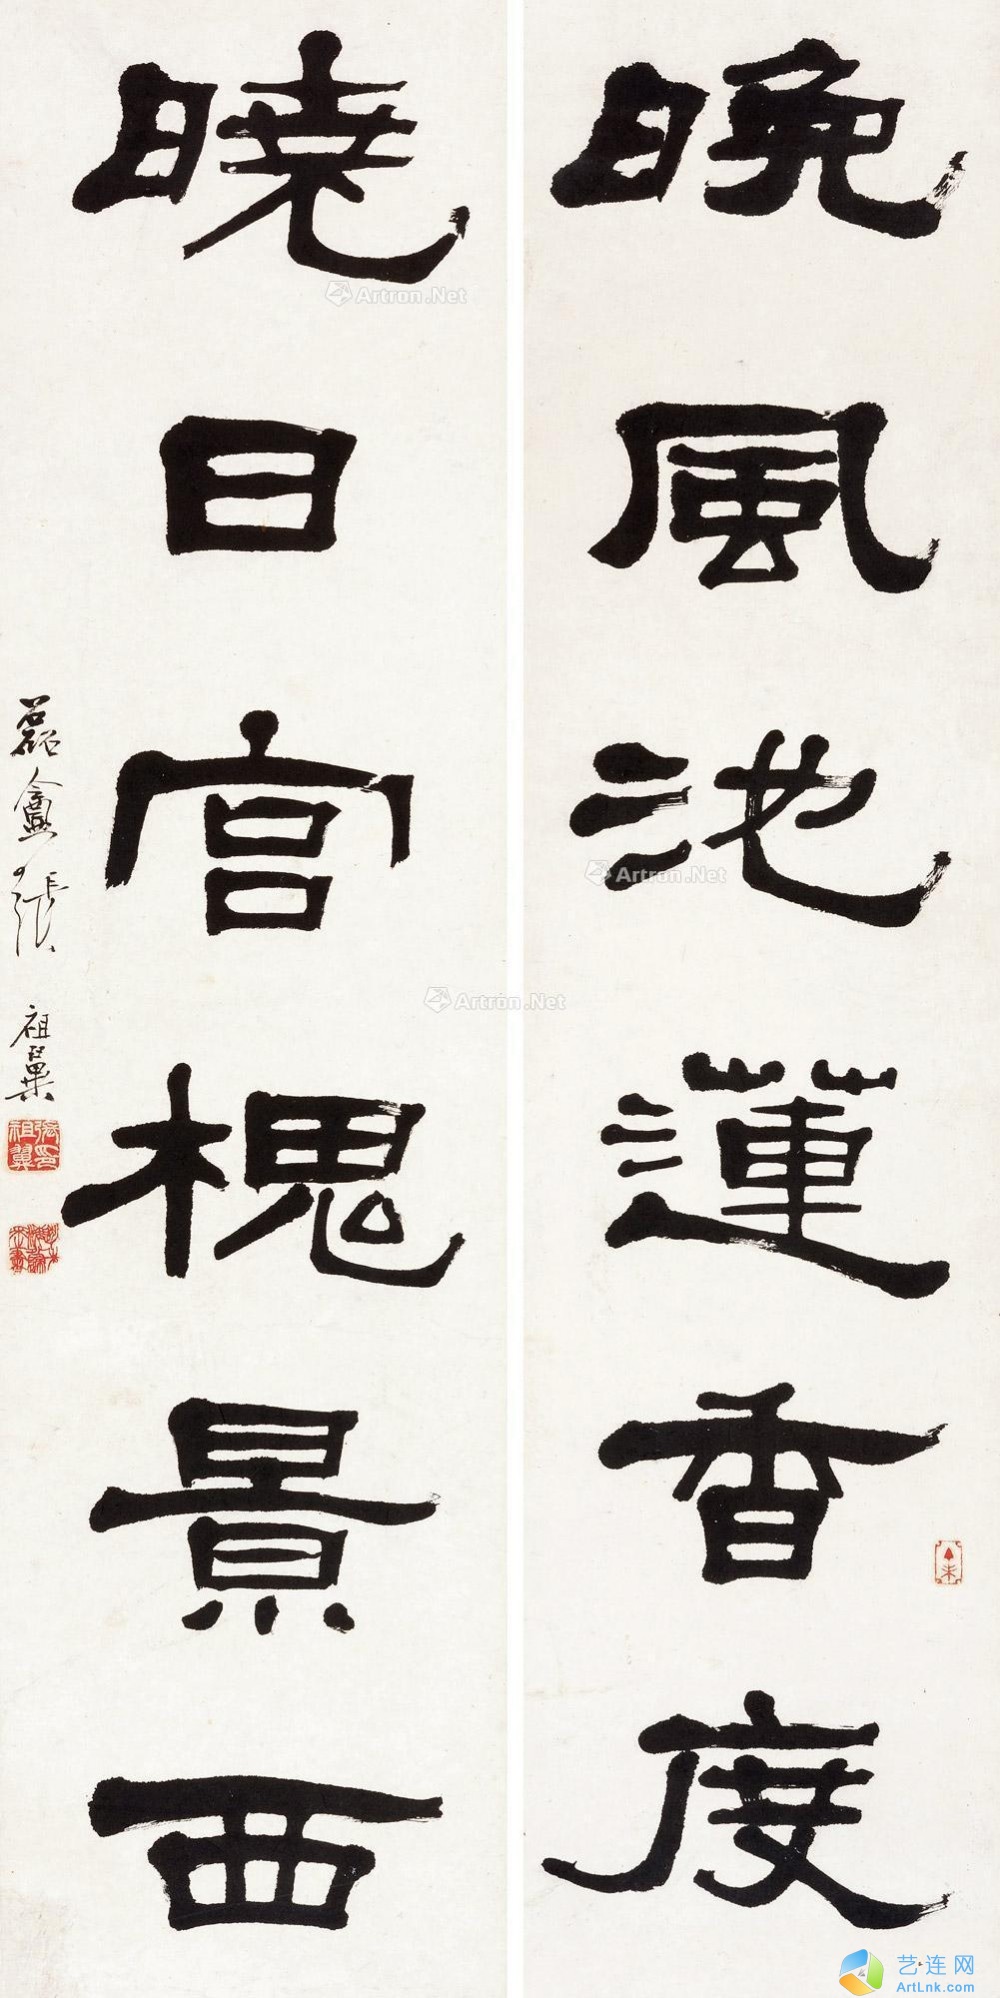 晚風池蓮香度
曉日宮槐景西
磊盦張祖翼
張祖翼印
Artron.Net
Artron.Net
Artron.Net
艺连网
ArtLnk.com